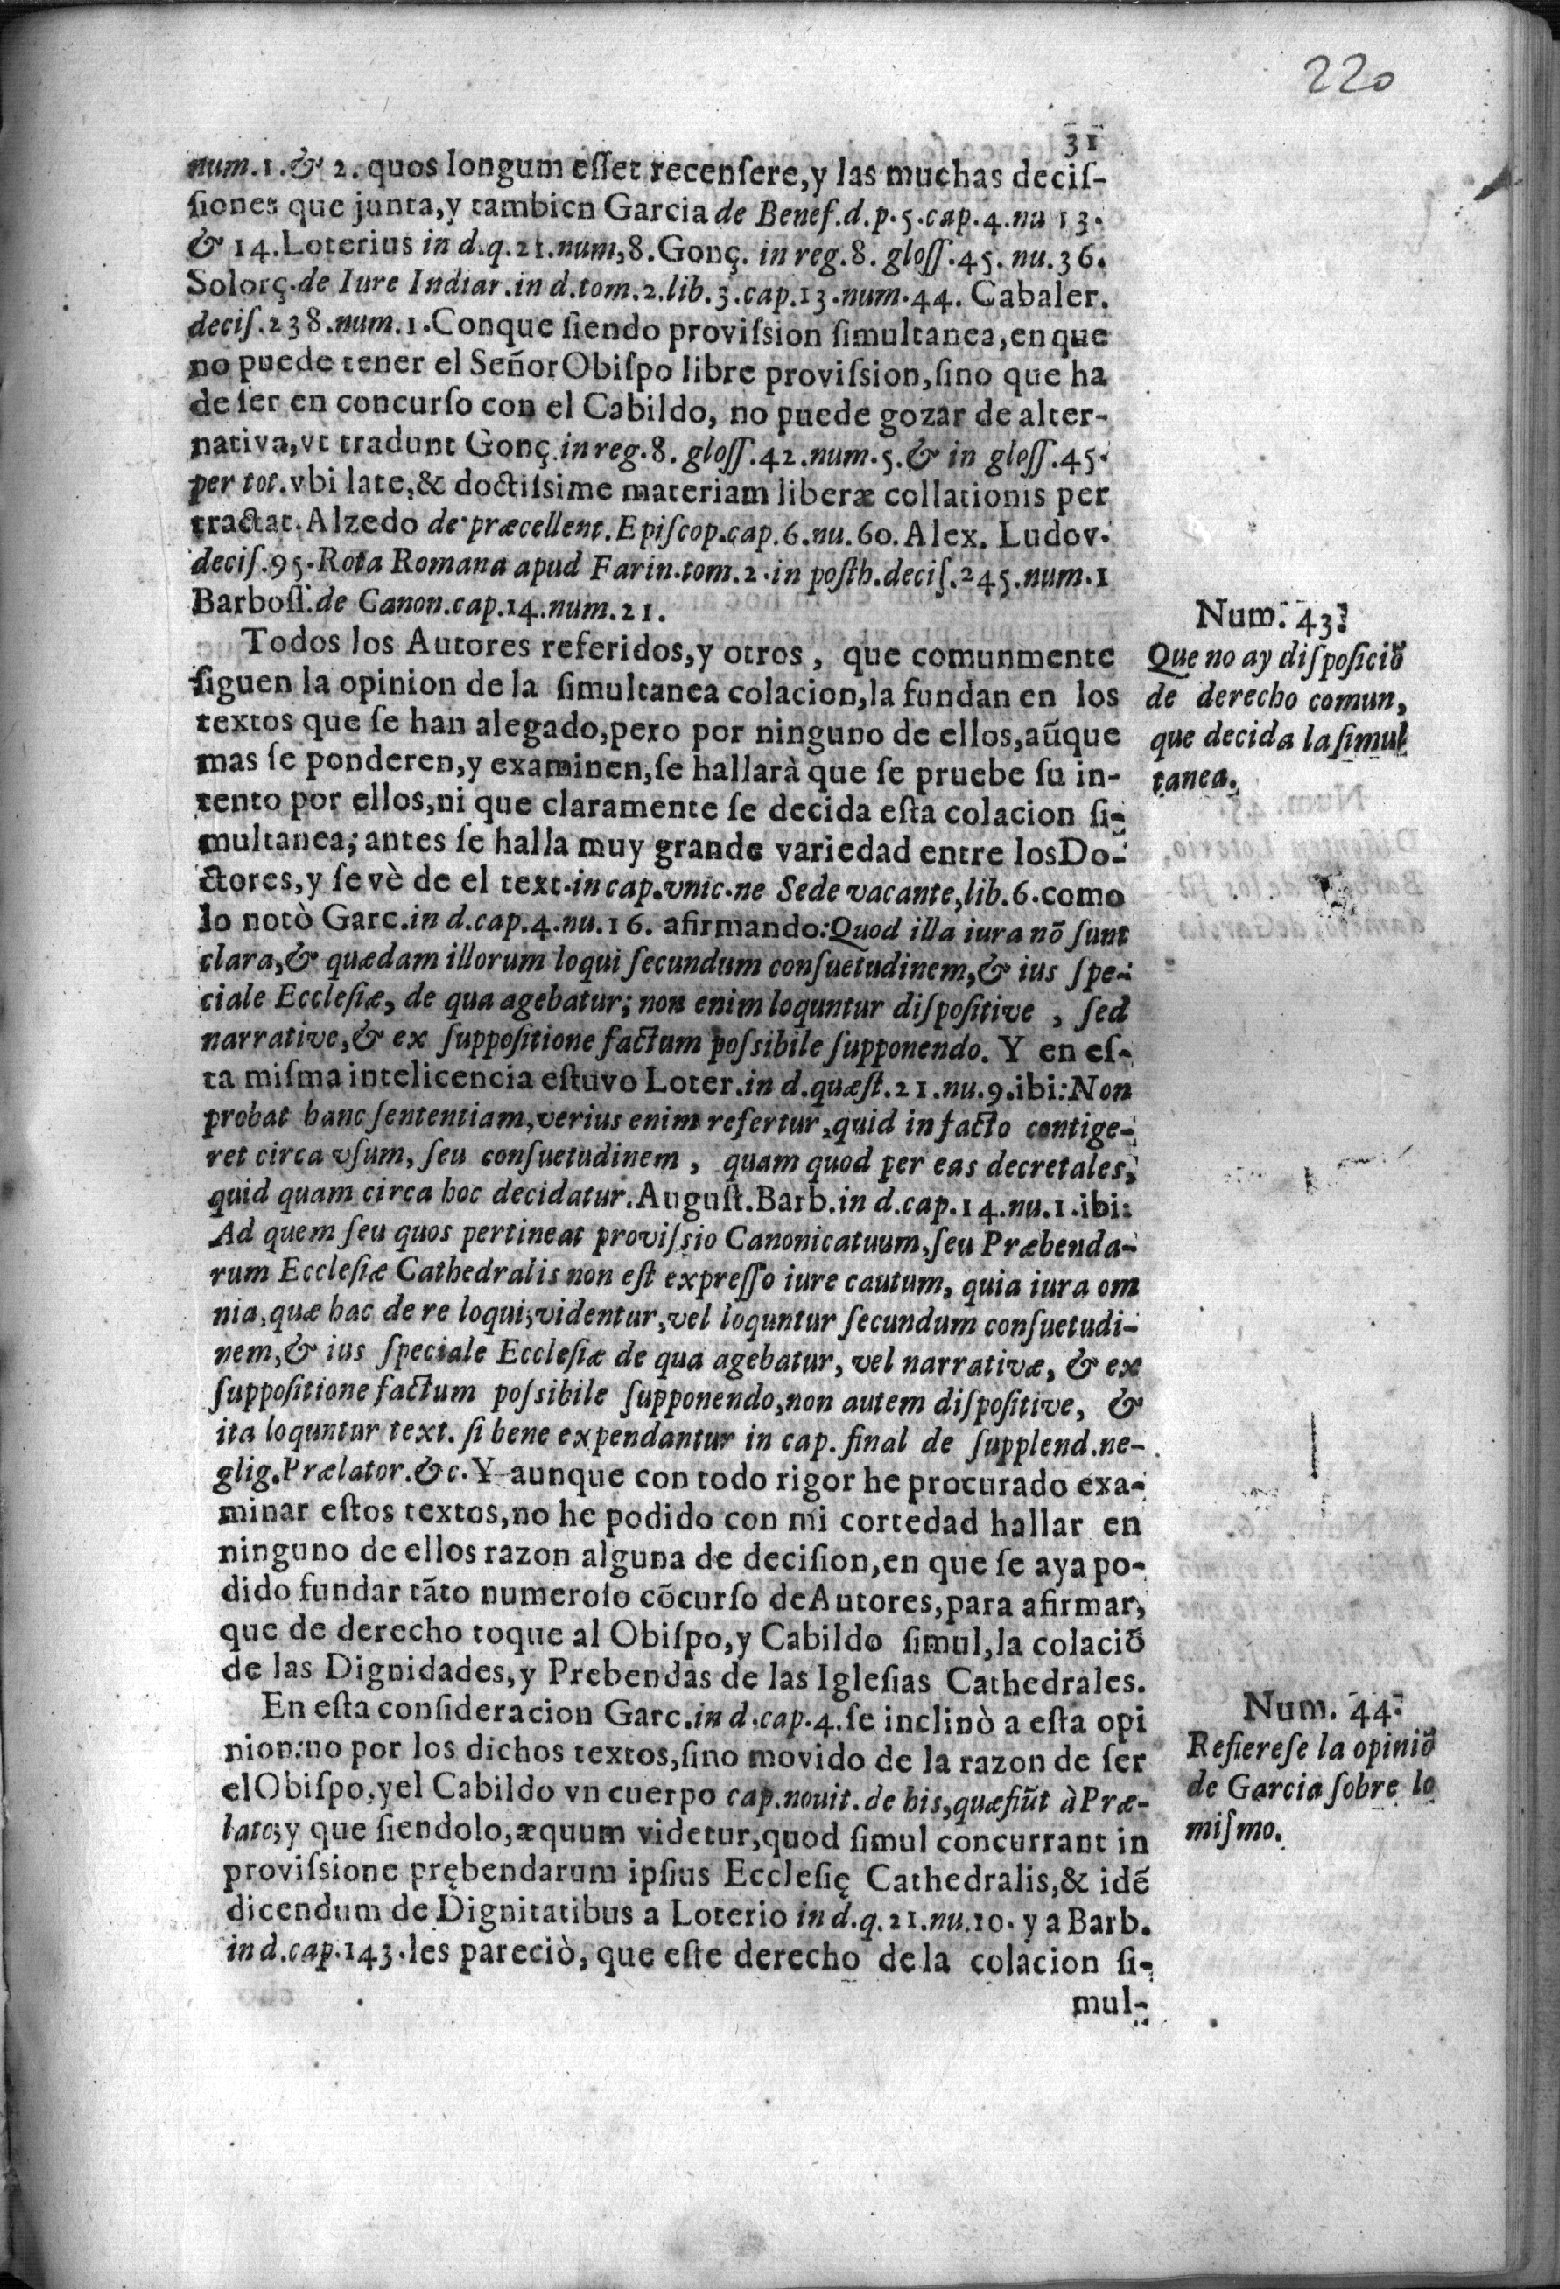 220
31
num.1.& 2. quos longum eſſet recenſere,y las muchas deciſ-
ſiones que junta,y tambien Garcia de Benef.d.p.5.cap.4.nu 13.
& 14.Loterius in d.q.21.num,8.Gonç. in reg.8. gloſſ.45. nu.36.
Solorç.de Iure Indiar.in d.tom.2.lib.3.cap.13.num.44. Cabaler.
deciſ.238.num.1.Conque ſiendo proviſsion ſimultanea,en que
no puede tener el Señor Obiſpo libre proviſsion,ſino que ha
de ſer en concurſo con el Cabildo, no puede gozar de alter-
nativa,vt tradunt Gonç.in reg.8. gloſſ.42.num.5.& in gloſſ.45.
per tot.vbi late,& doctiſsime materiam liberæ collationis per
tractat.Alzedo de præcellent.Epiſcop.cap.6.nu.60.Alex. Ludov.
deciſ.95.Rota Romana apud Farin.tom.2.in poſth.deciſ.245.num.1
Barboſſ.de Canon.cap.14.num.21.
Todos los Autores referidos,y otros , que comunmente
ſiguen la opinion de la ſimultanea colacion,la fundan en los
textos que ſe han alegado,pero por ninguno de ellos,aũque
mas ſe ponderen,y examinen,ſe hallarà que ſe pruebe ſu in-
tento por ellos,ni que claramente ſe decida eſta colacion ſi-
multanea; antes ſe halla muy grande variedad entre los Do-
ctores,y ſe vè de el text.in cap.vnic.ne Sede vacante,lib.6.como
lo notò Garc.in d.cap.4.nu.16. afirmando:Quod illa iura nõ ſunt
clara,& quædam illorum loqui ſecundum conſuetudinem,& ius ſpe-
ciale Eccleſiæ, de qua agebatur; non enim loquntur diſpoſitive , ſed
narrative,& ex ſuppoſitione factum poſsibile ſupponendo. Y en eſ-
ta miſma intelicencia eſtuvo Loter.in d.quæſt.21.nu.9.ibi:Non
probat hanc ſententiam,verius enim refertur,quid in facto contige-
ret circa vſum, ſeu conſuetudinem , quam quod per eas decretales,
quid quam circa hoc decidatur.Auguſt.Barb.in d.cap.14.nu.1.ibi:
Ad quem ſeu quos pertineat proviſsio Canonicatuum,ſeu Præbenda-
rum Eccleſiæ Cathedralis non eſt expreſſo iure cautum, quia iura om
nia,quæ hac de re loqui,videntur,vel loquntur ſecundum conſuetudi-
nem,& ius ſpeciale Eccleſiæ de qua agebatur, vel narrativæ, & ex
ſuppoſitione factum poſsibile ſupponendo,non autem diſpoſitive, &
ita loquntur text. ſi bene expendantur in cap. final de ſupplend.ne-
glig.Prælator.&c.Y aunque con todo rigor he procurado exa-
minar eſtos textos,no he podido con mi cortedad hallar en
ninguno de ellos razon alguna de deciſion,en que ſe aya po-
dido fundar tãto numeroſo cõcurſo de Autores,para afirmar,
que de derecho toque al Obiſpo,y Cabildo ſimul,la colaciõ
de las Dignidades,y Prebendas de las Igleſias Cathedrales.
En eſta conſideracion Garc.in d.cap.4.ſe inclinò a eſta opi
nion:no por los dichos textos,ſino movido de la razon de ſer
el Obiſpo,y el Cabildo vn cuerpo cap.nouit.de his,quæ fiũt à Præ-
lato,y que ſiendolo,æquum videtur,quod ſimul concurrant in
proviſsione prębendarum ipſius Eccleſię Cathedralis,& idẽ
dicendum de Dignitatibus a Loterio in d.q.21.nu.10. y a Barb.
in d.cap.143.les pareciò, que eſte derecho de la colacion ſi-
mul-
Num. 43.
Que no ay diſpoſiciõ
de derecho comun,
que decida la ſimul
tanea.
Num. 44.
Refiereſe la opiniõ
de Garcia ſobre lo
miſmo.